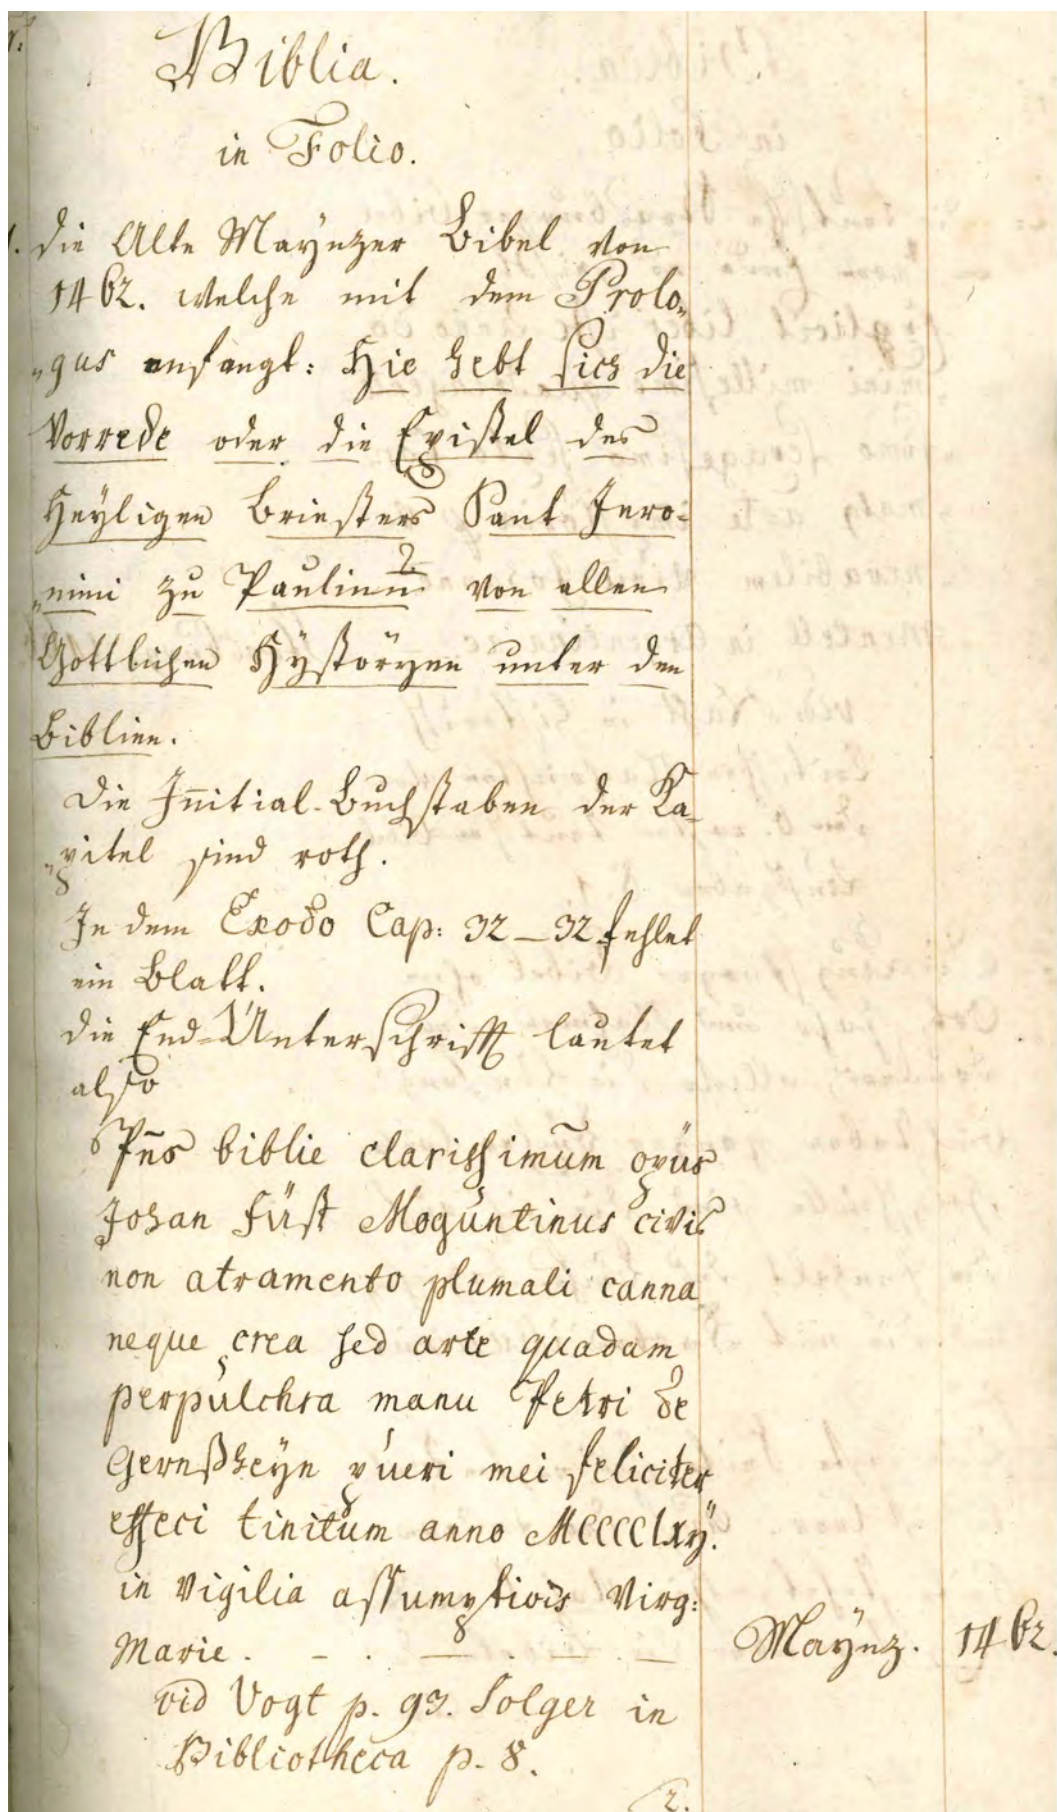 Biblia.
in Folio.
1. die Alte Maÿnzer Bibel von
1462. welche mit dem Prolo„
„gus anfangt: Hie hebt sich die
Vorrede oder die Epistel des
Heÿligen Briesters Sant Jero-
„nimi zu Paulinū von allen
Gottlichen Hÿstörÿen unter den
Biblien.
Die Iñitial-Buchstaben der Ka-
„pitel sind roth.
In dem Exodo Cap: 32–32 fehlet
ein Blatt.
die End-Unterschrifft lautet
also
Pn̄s biblie clarissimūm opus
Johan Fust Moguntinus civis
non atramento plumali canna
neque crea sed arte quadam
perpulchra manu Petri de
Gernßheÿn pueri mei feliciter
effeci tinitum anno MCCCClxij.
in vigilia assumptiois Virg:
Marie.
Maÿnz. 1462.
vid Vogt p. 93. Solger in
Bibliotheca p. 8.
2.